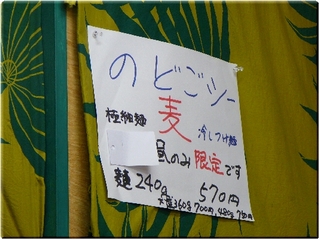 のどごシー
麦 冷しつけ麺
極細麺
昼のみ限定です
麺240g 570円
大盛360g 700円, 480g 750円